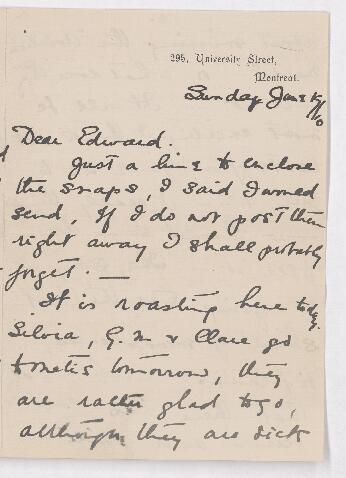 295, University Street,
Montreal.
Sunday June
Dear Edward.
Just a line to enclose
the snaps, I said I would
send, If I do not post them
right away I shall probably
forget. —
It is roasting here today.
Silvia, G. M. & Clare go
to Metis tomorrow, they
are rather glad to go,
although they are sick